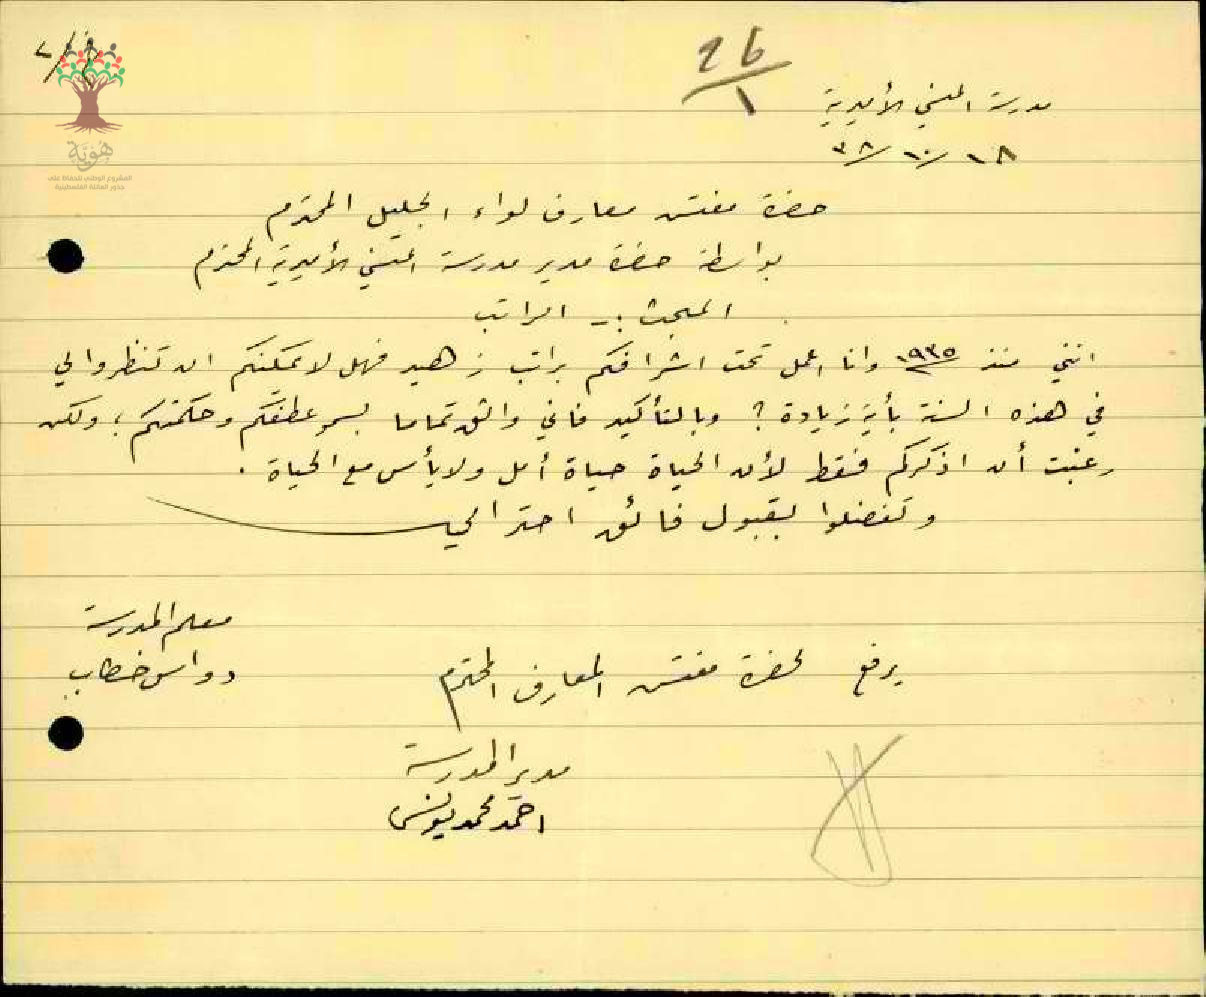 26/1
مدرسة المنسي الأميرية
١٨/١٠/٣٨
حضرة مفتش معارف لواء الجليل المحترم
بواسطة حضرة مدير مدرسة المنسي الأميرية المحترم
المبحث :- الراتب
انني منذ ١٩٣٥ وانا اعمل تحت اشرافكم براتب زهيد فهل لا يمكنكم ان تنظروا لي
في هذه السنة بأية زيادة ؟ وبالتأكيد فاني واثق تماما بسمو عطفكم وحكمتكم ؛ ولكن
رغبت أن اذكركم فقط لأن الحياة حياة أمل ولا يأس مع الحياة .
وتفضلوا بقبول فائق احترامي
معلم المدرسة
دواس خطاب
يرفع لحضرة مفتش المعارف المحترم
مدير المدرسة
احمد محمد يونس
هُوِيَّة
المشروع الوطني للحفاظ على
جذور العائلة الفلسطينية